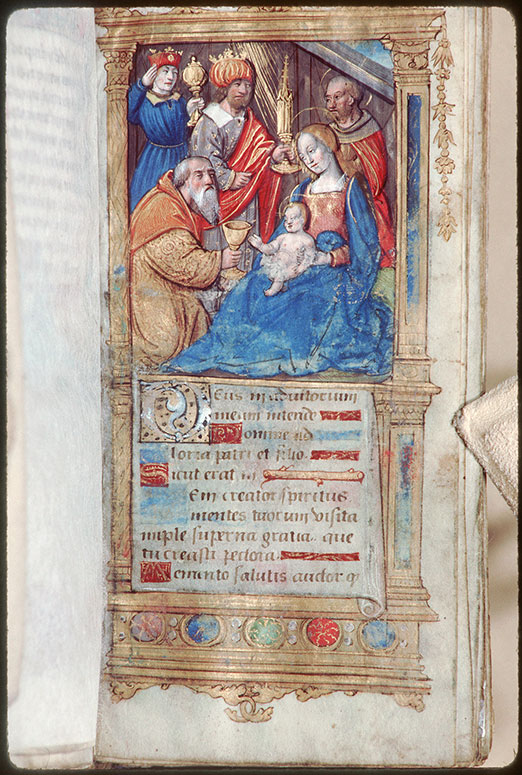 Deus in adiutorium
meum intende
Domine ad
Gloria patri et filio
Sicut erat in
Veni creator spiritus
mentes tuorum visita
imple superna gratia que
tu creasti pectora
Memento salutis auctor q